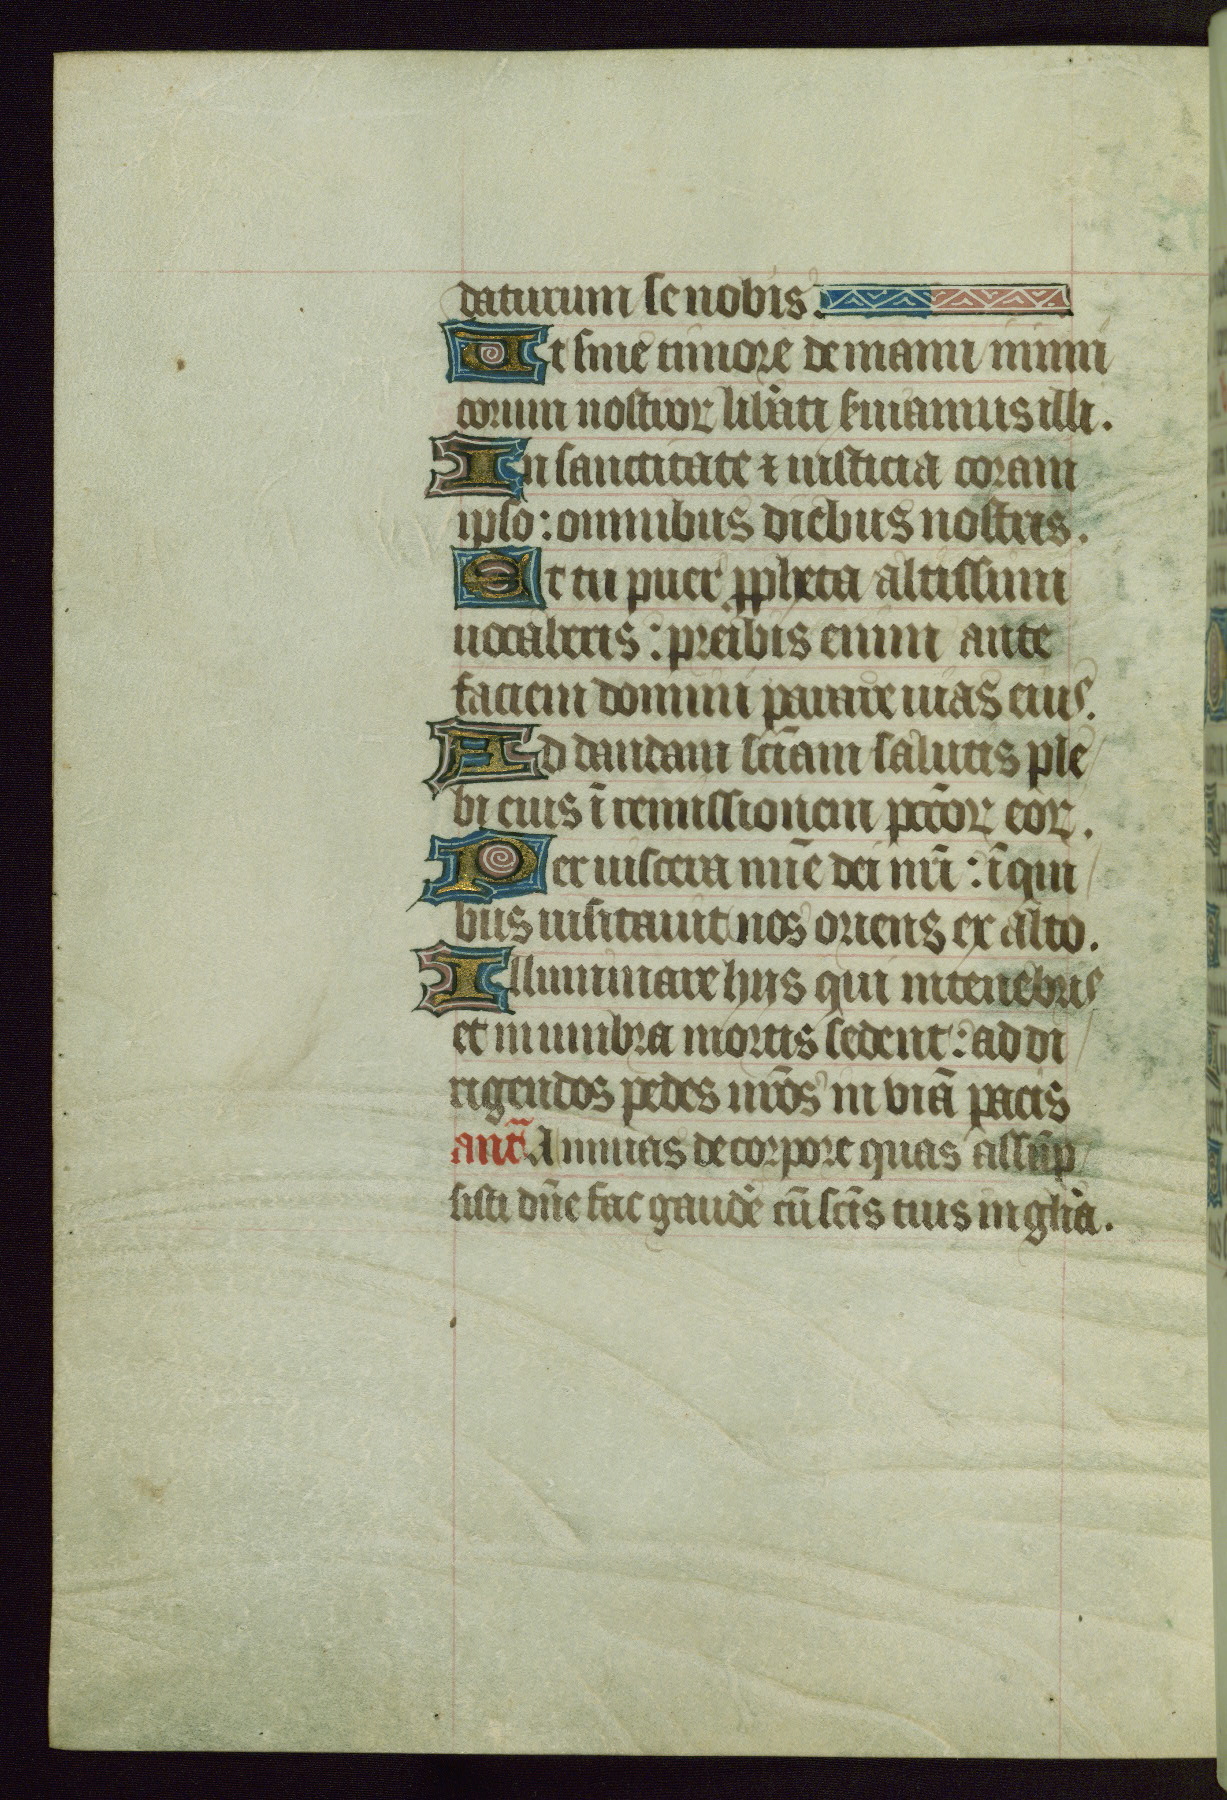 daturum se nobis.
Ut sine timore de manu inimi
corum nostror liba̍ti ẜuiamus illi.
In sanctitate ⁊ iusticia coram
ipso: omnibus diebus nostris.
Et tu puer ꝓpheta altissimi
uocaberis: preibis enim ante
faciem domini parare uias eius.
Ad dandam scīam salutis ple
bi eius ī remissionem pccōꝝ eoꝝ.
Per uiscera mīe dei nrī: ī qui
bus uisitauit nos oriens ex alto.
Illuminare hijs qui in tenebris
et in umbra mortis sedent: ad di
rigendos pedes nrōs in viā pacis
antᷓ. Animas de corpore quas assūp
sisti dn̄e fac gaude̍ cū scīs tuis in glīa.